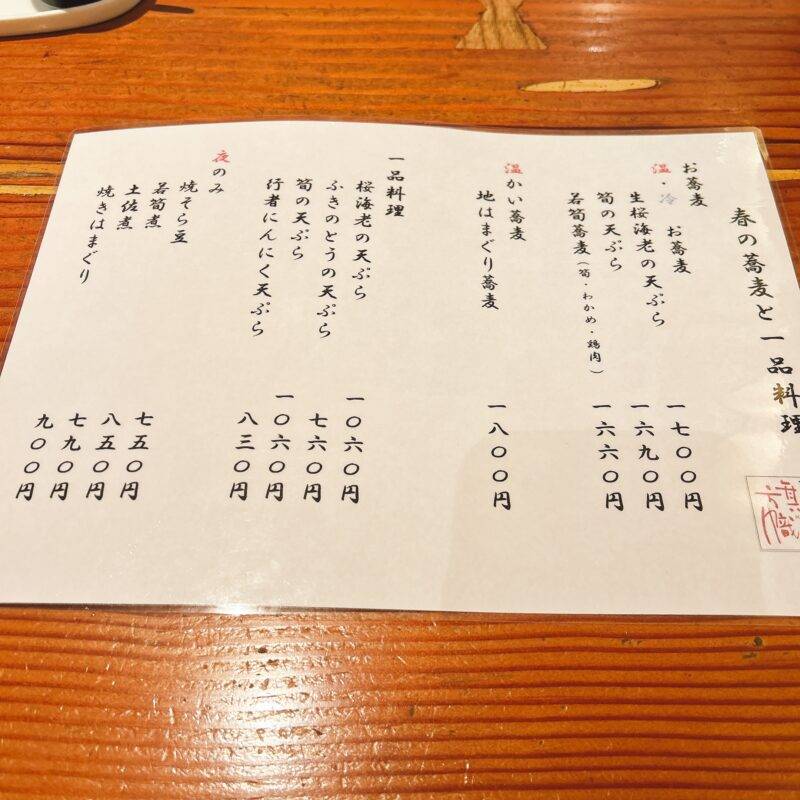 春の蕎麦と一品料理
お蕎麦
温・冷 お蕎麦
生桜海老の天ぷら 一七〇〇円
筍の天ぷら 一六九〇円
若筍蕎麦(筍・わかめ・鶏肉) 一六六〇円
温かい蕎麦
地はまぐり蕎麦 一八〇〇円
一品料理
桜海老の天ぷら 一〇六〇円
ふきのとうの天ぷら 七六〇円
筍の天ぷら 一〇六〇円
行者にんにく天ぷら 八三〇円
夜のみ
焼そら豆 七五〇円
若筍煮 八五〇円
土佐煮 七九〇円
焼きはまぐり 九〇〇円